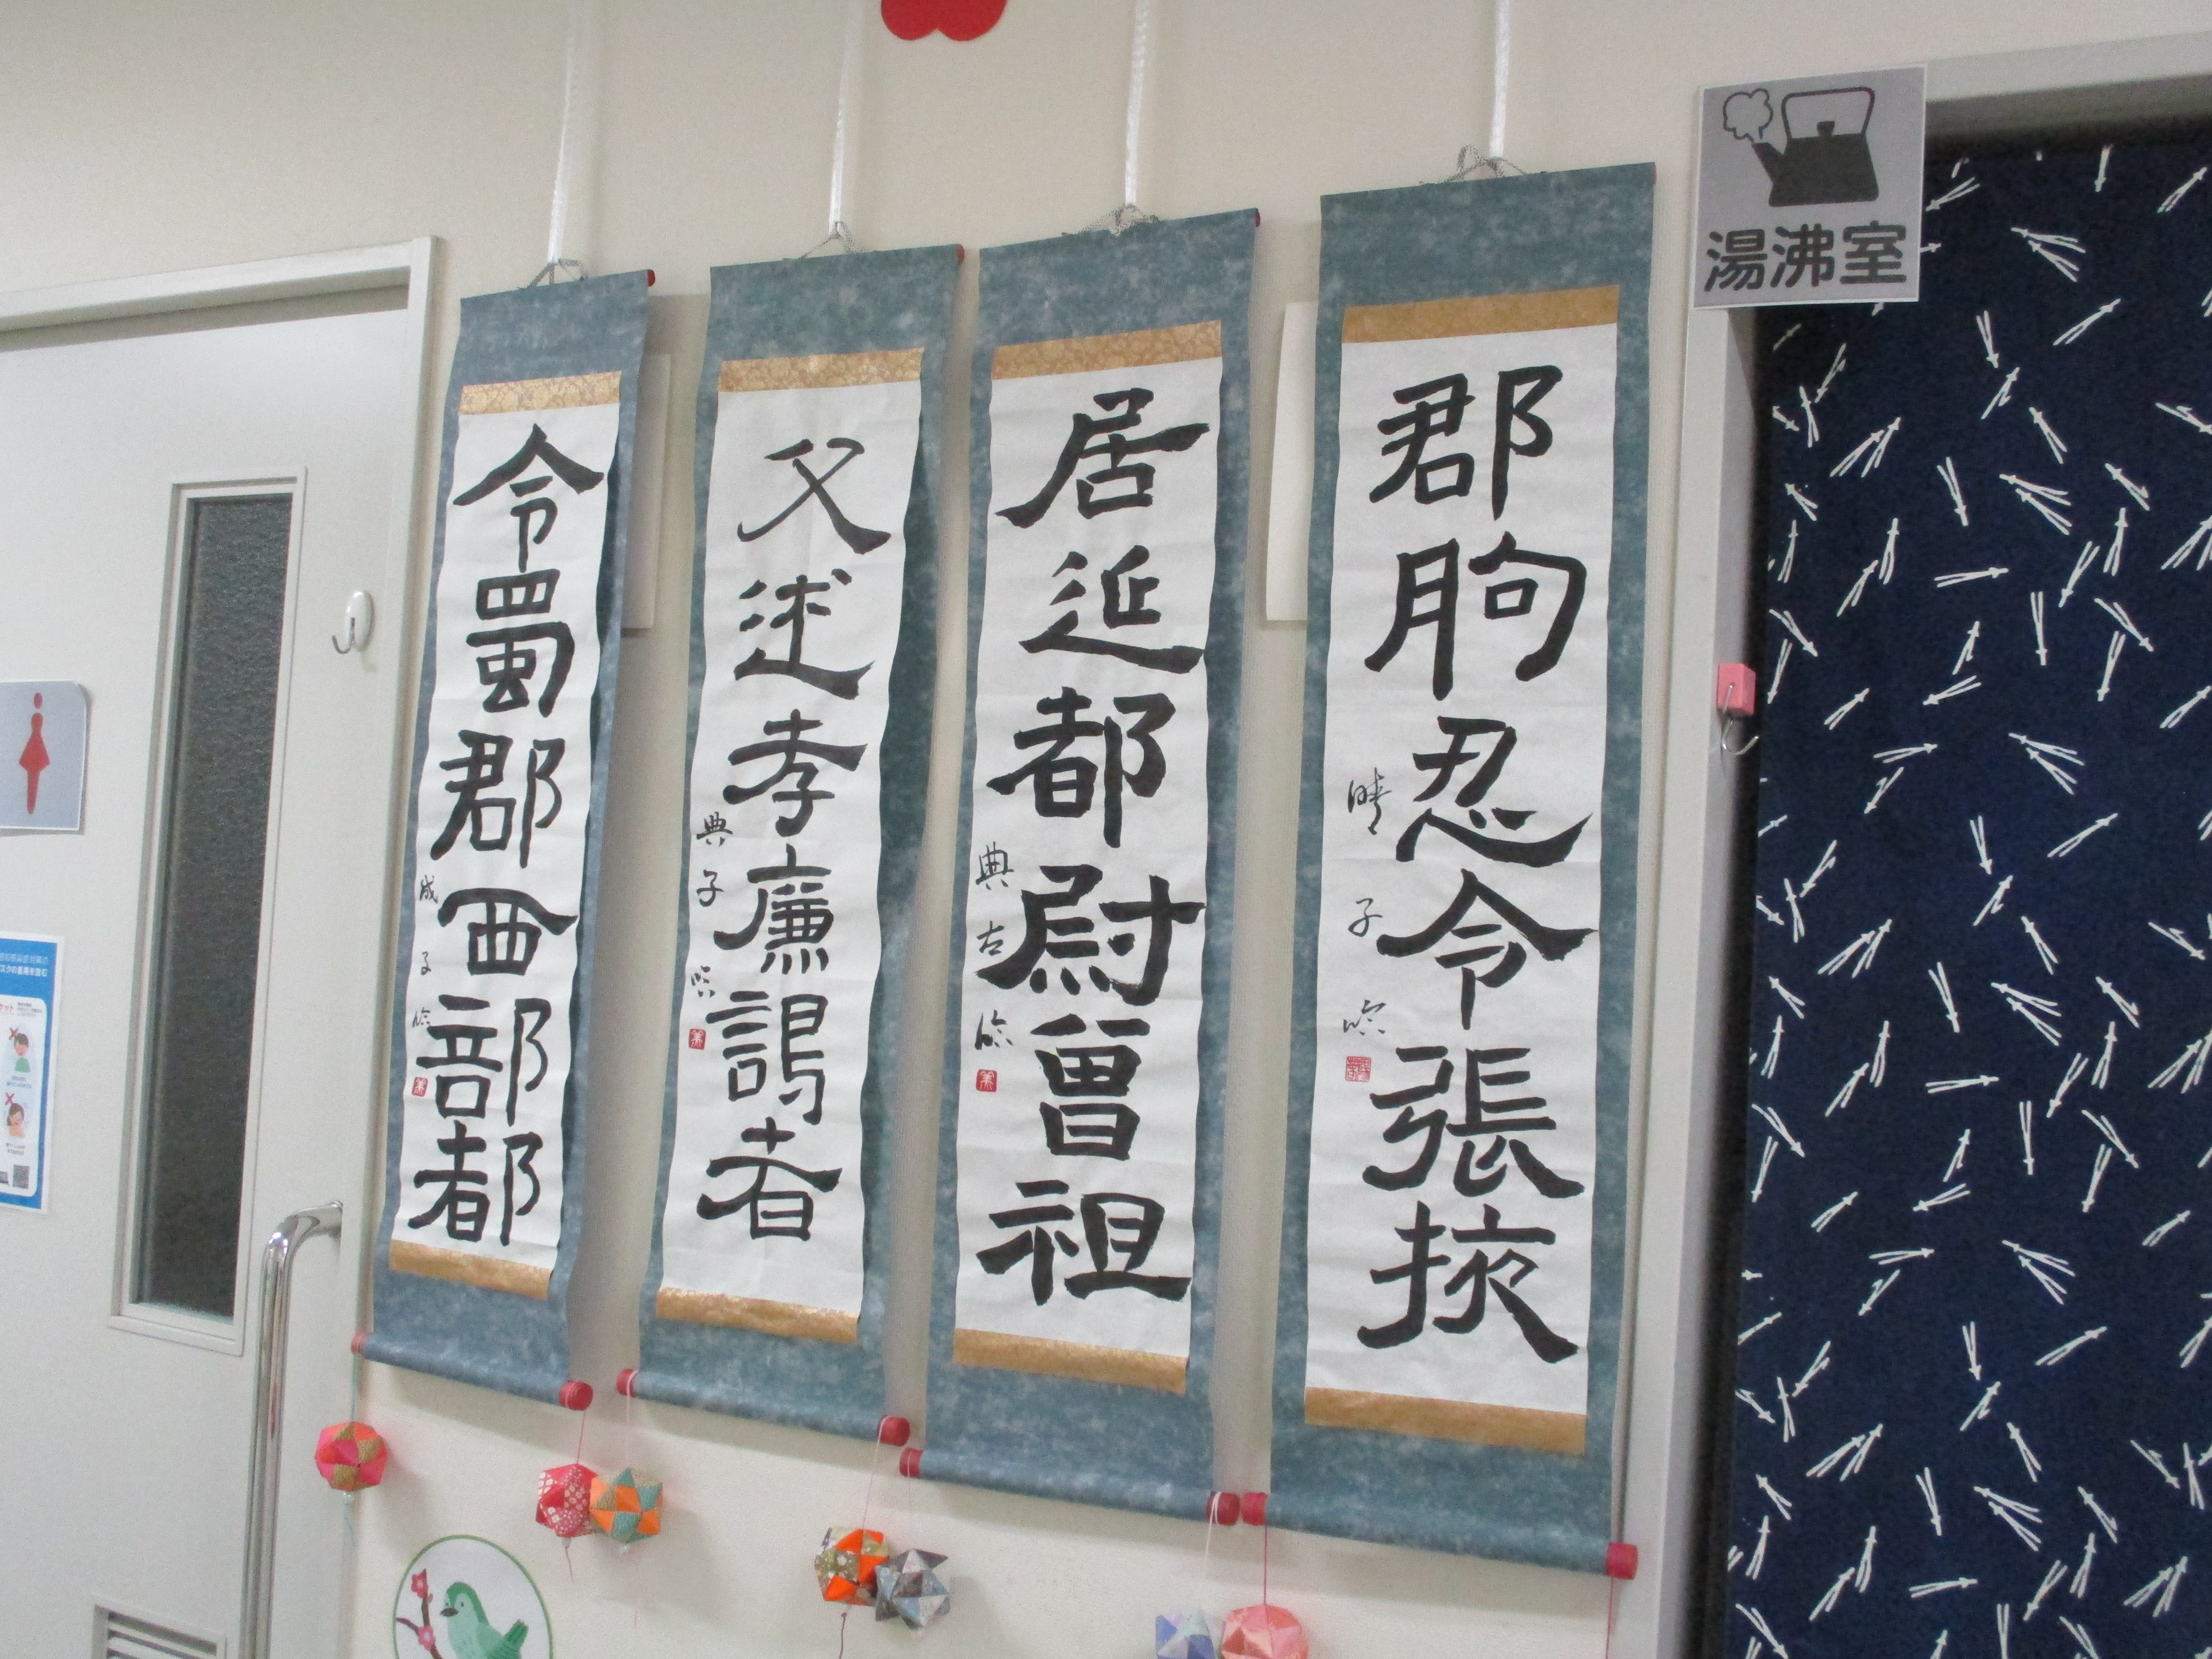 湯沸室
郡朐忍令張掖
晴子臨
居延都尉曾祖
典古臨
父述孝廉謁者
典子臨
令蜀郡西部都
成子臨